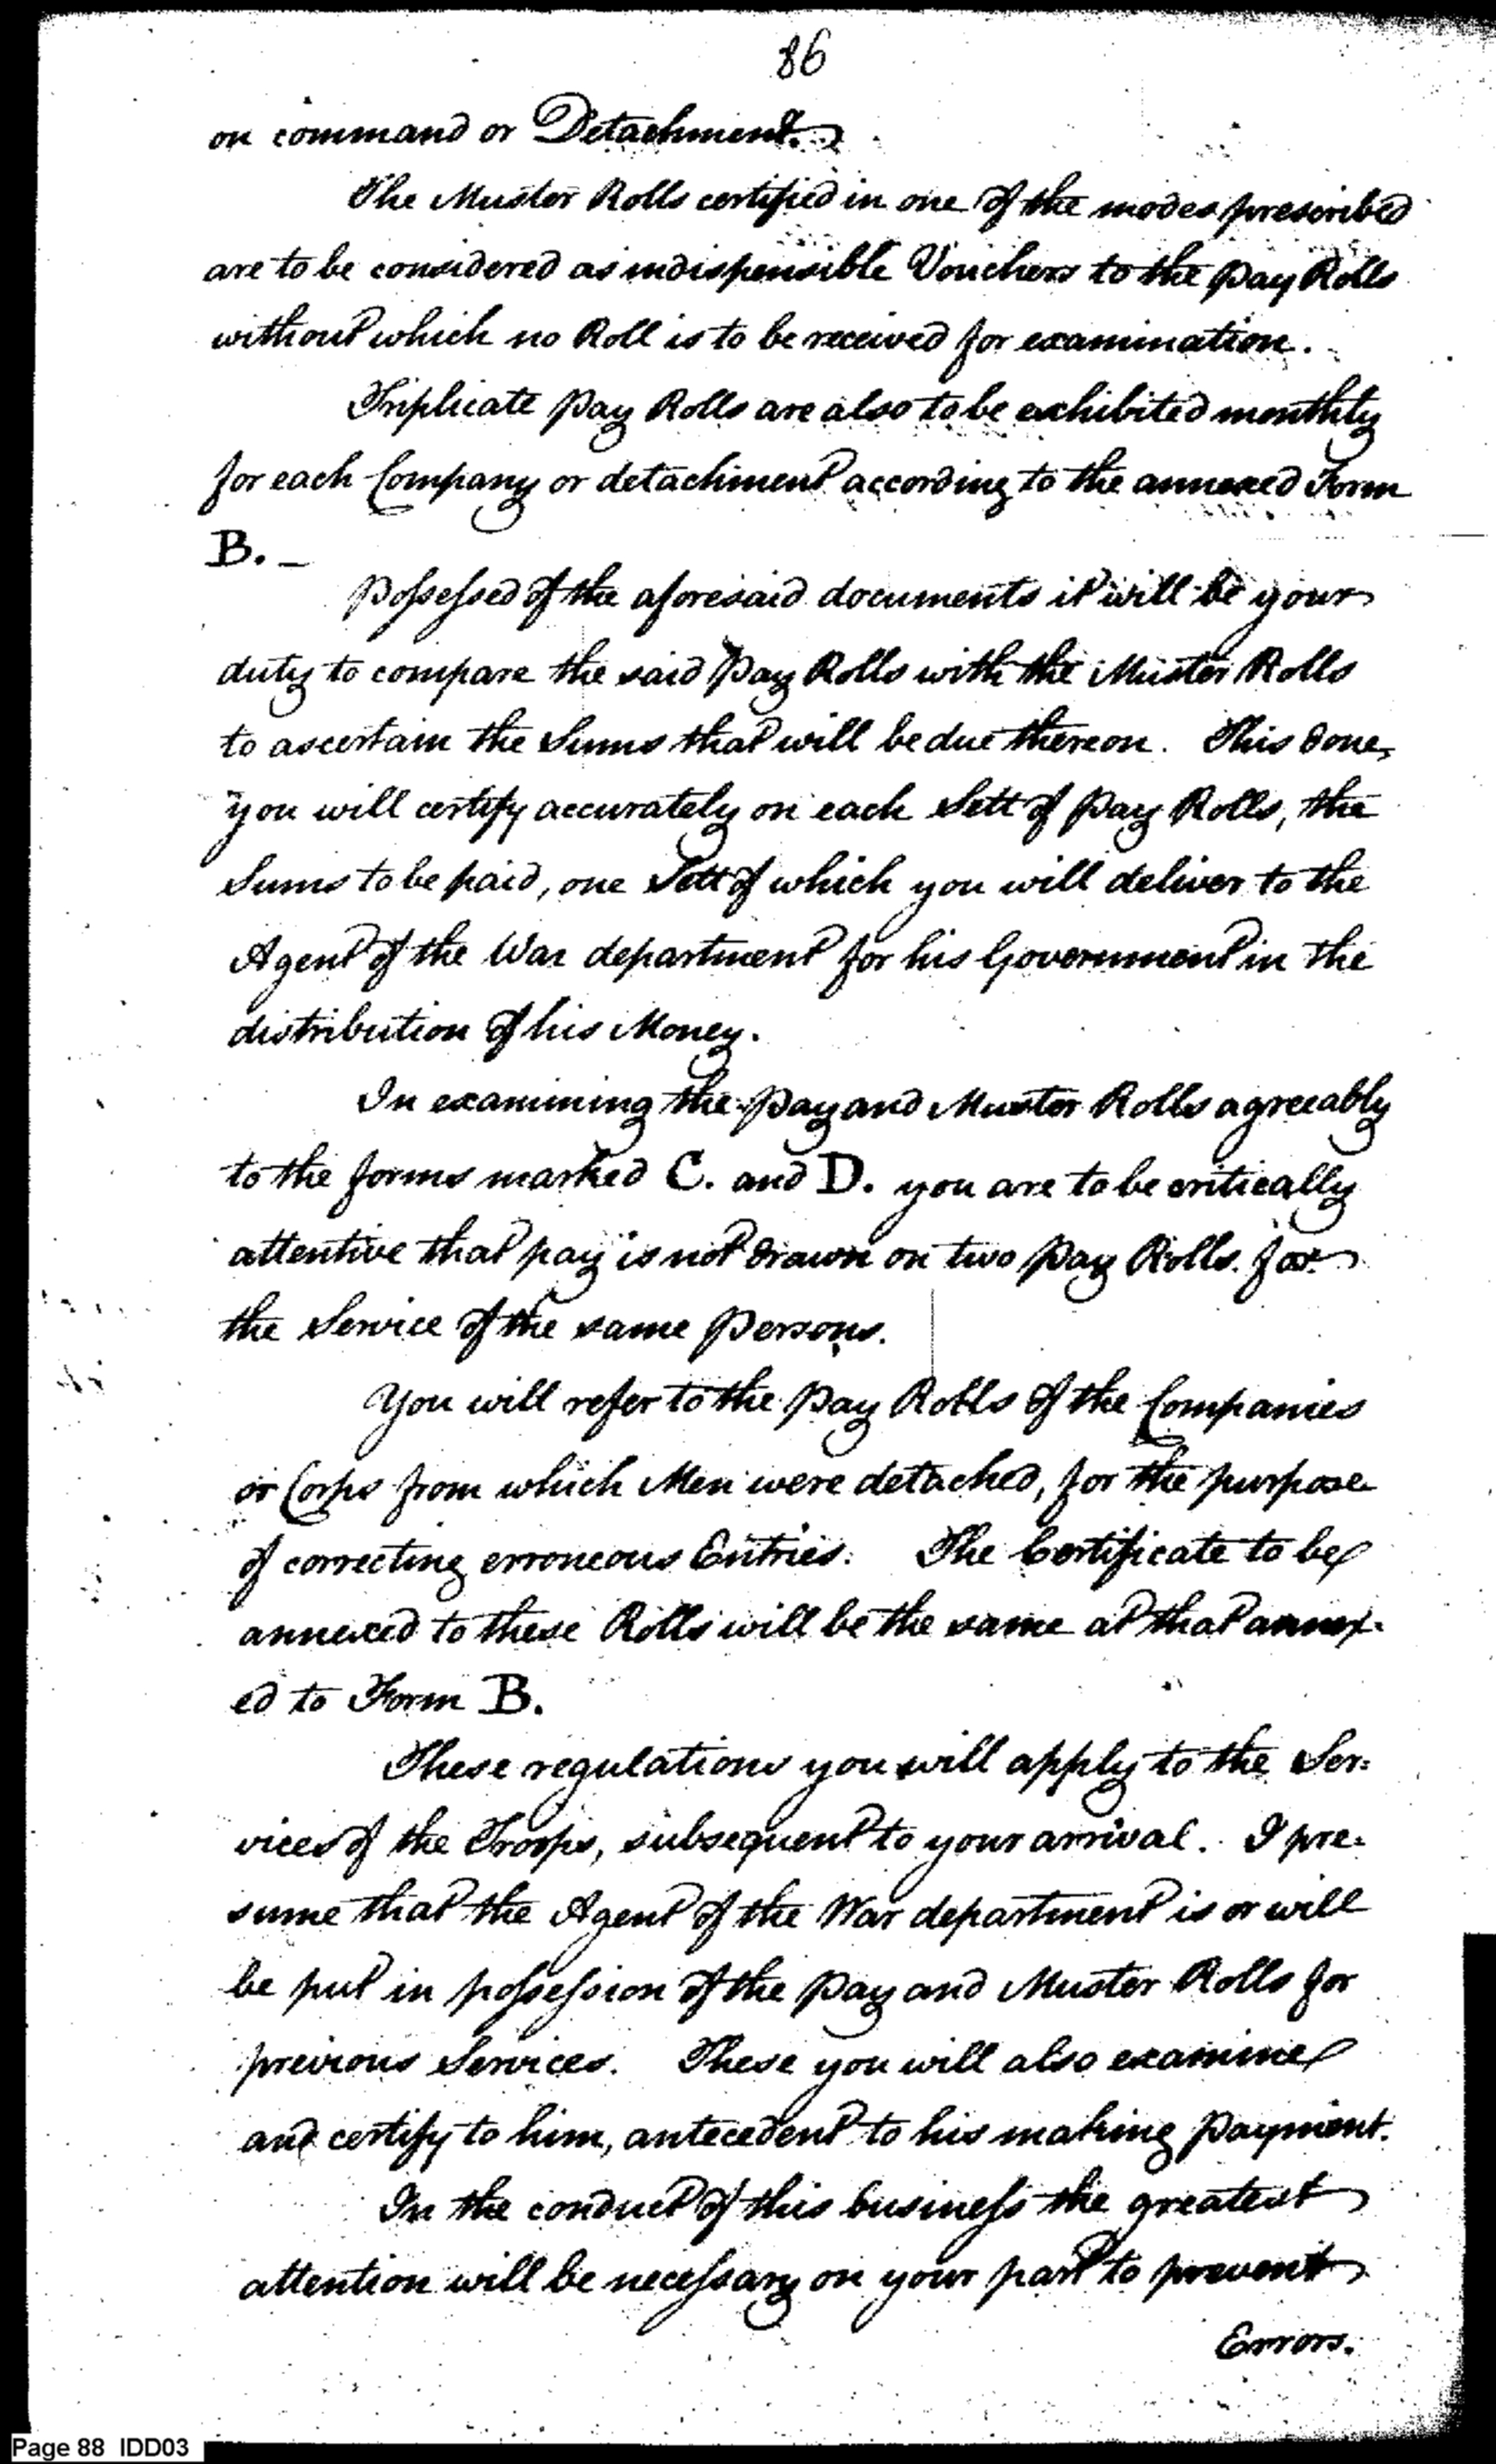 86
on command or Detachment.
The Muster Rolls certified in one of the modes prescribed
are to be considered as indispensible Vouchers to the Pay Rolls
without which no Roll is to be received for examination.
Triplicate Pay Rolls are also to be exhibited monthly
for each Company or detachment according to the annexed Form
B. _
Possessed of the aforesaid documents it will be your
duty to compare the said Pay Rolls with the Muster Rolls
to ascertain the Sums that will be due thereon. This done,
you will certify accurately on each Sett of Pay Rolls, the
Sums to be paid, one Sett of which you will deliver to the
Agent of the War department for his Government in the
distribution of his Money.
In examining the Pay and Muster Rolls agreeably
to the forms marked C. and D. you are to be critically
attentive that pay is not drawn on two Pay Rolls for
the Service of the same Persons.
You will refer to the Pay Rolls of the Companies
or Corps from which Men were detached, for the purpose
of correcting erroneous Entries. The Certificate to be
annexed to these Rolls will be the same at that annex-
ed to Form B.
These regulations you will apply to the Ser:
vices of the Troops, subsequent to your arrival. I pre-
sume that the Agent of the War department is or will
be put in possession of the Pay and Muster Rolls for
previous Services. These you will also examine
and certify to him, antecedent to his making Payment.
In the conduct of this business the greatest
attention will be necessary on your part to prevent
Errors.
Page 88 IDD03